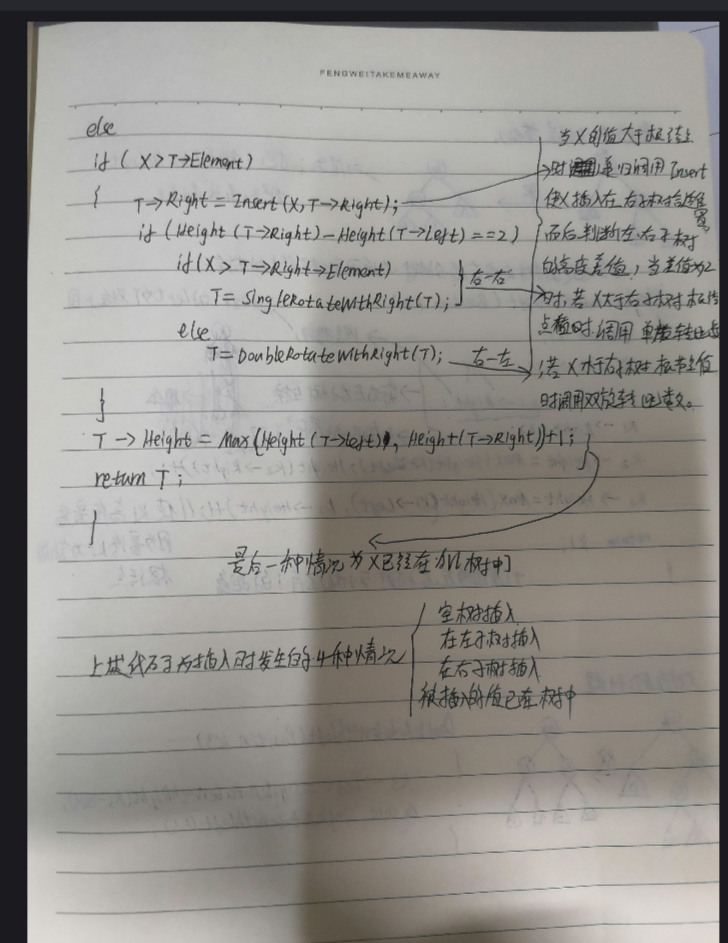 FENGWEITAKEMEAWAY
else
if ( X > T→Element)
{ T→Right = Insert (X, T→Right);
if (Height (T→Right) - Height (T→Left) ==2)
if (X > T→Right→Element)
T = SingleRotateWithRight (T);
右-右
else
T = DoubleRotateWithRight (T);
右-左
}
T → Height = Max (Height (T→Left), Height (T→Right)) + 1;
return T;
}
当X的值大于根结点
时 递归调用 Insert
使X插入在右子树合适位置
而后判断左、右子树
的高度差值,当差值为2
时,若X大于右子树根结
点值时,调用单旋转
;若X小于右子树根节点值
时调用双旋转
最后一种情况为X已经在 树中
上述代码为插入时发生的4种情况
空树插入
在左子树插入
在右子树插入
被插入的值已在树中